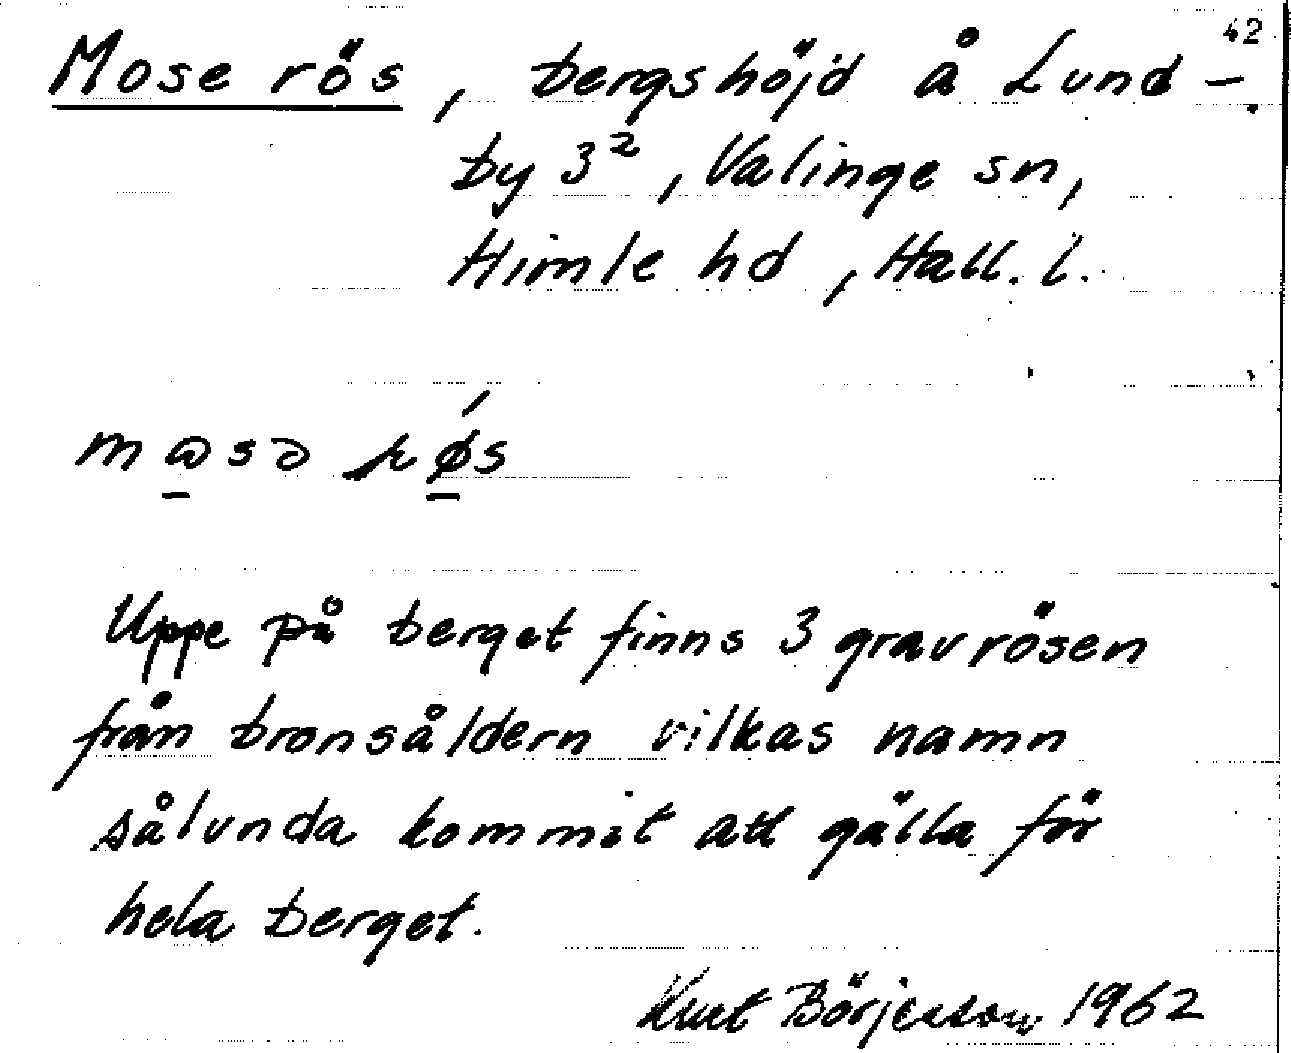 42
Mose rös, bergshöjd å Lund-
by 3², Valinge sn,
Himle hd, Hall. l.
mɷsə rǿs
Uppe på berget finns 3 gravrösen
från bronsåldern vilkas namn
sålunda kommit att gälla för
hela berget.
Kurt Börjesson 1962